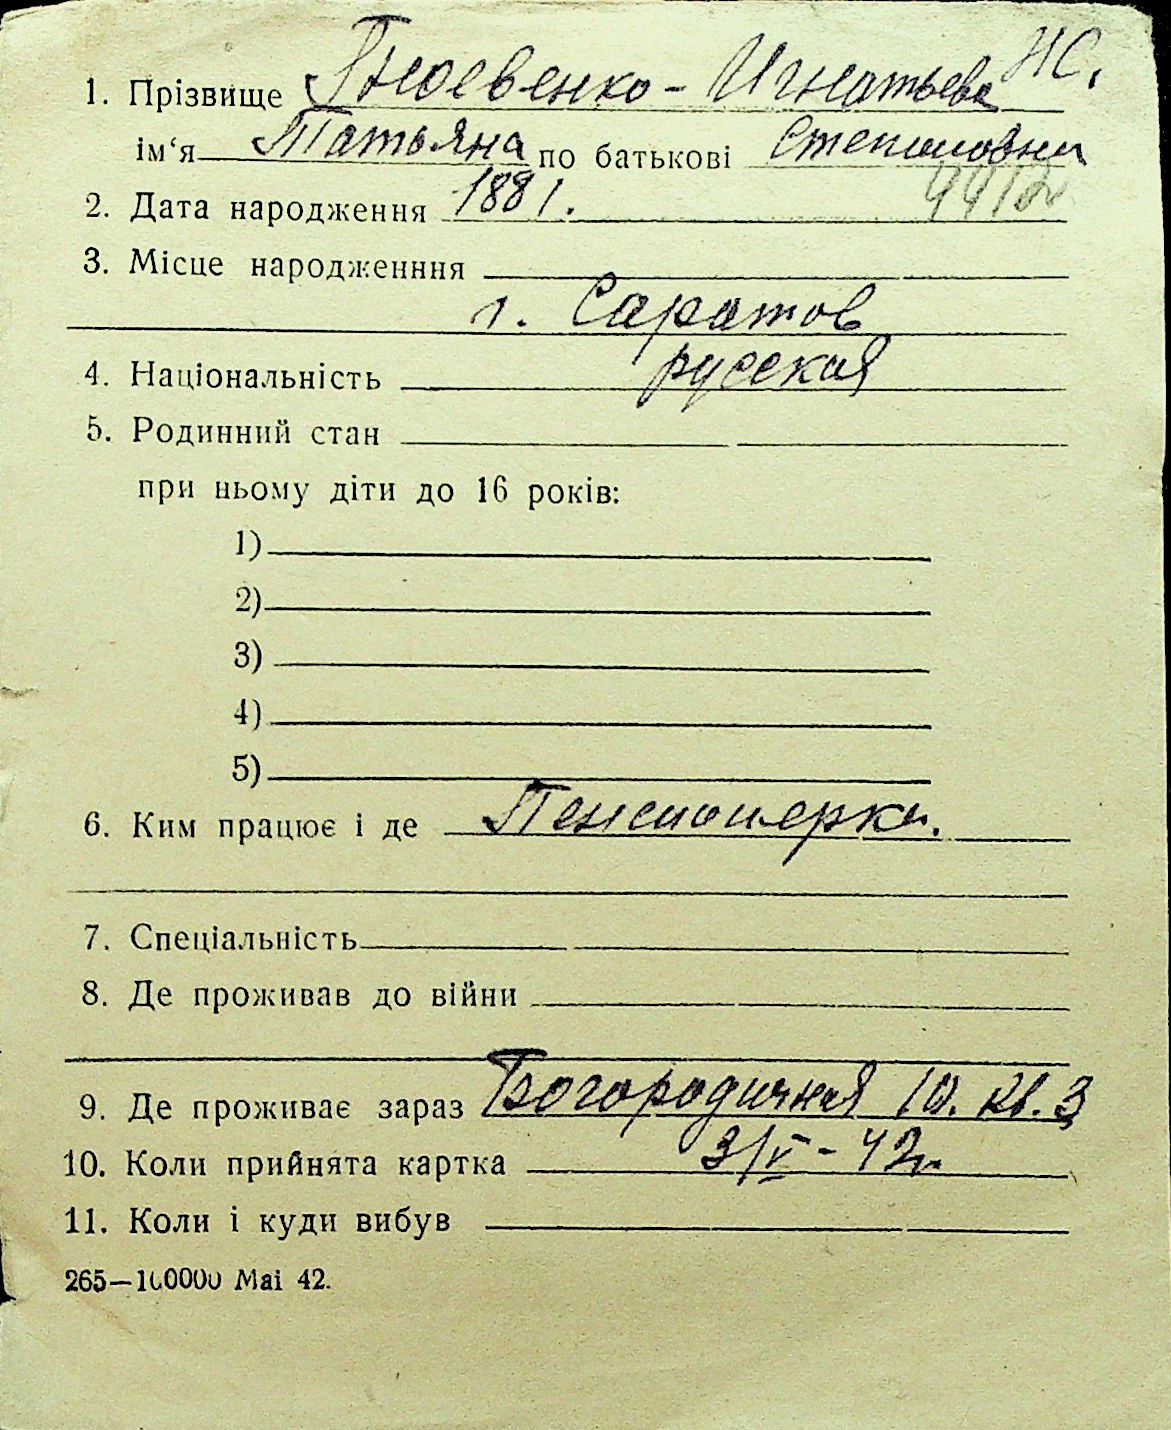 НС.
1. Прізвище Гноевенко - Игнатьева
ім‘я Татьяна по батькові Степановна
2. Дата народження 1881.
3. Місце народженння
г. Саратов
4. Національність русская
5. Родинний стан
при ньому діти до 16 років:
1)
2)
3)
4)
5)
6. Ким працює і де Пенсионерка.
7. Спеціальність
8. Де проживав до війни
9. Де проживає зараз Богородичная 10. кв. 3
10. Коли прийнята картка 3/V - 42г.
11. Коли і куди вибув
265—100000 Mai 42.